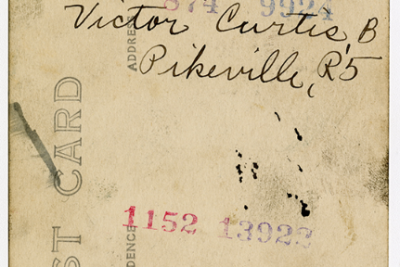 874 9924
Victor Curtis, B
Pikeville, R5
ADDRE
ST CARD
1152 13923
DENCE